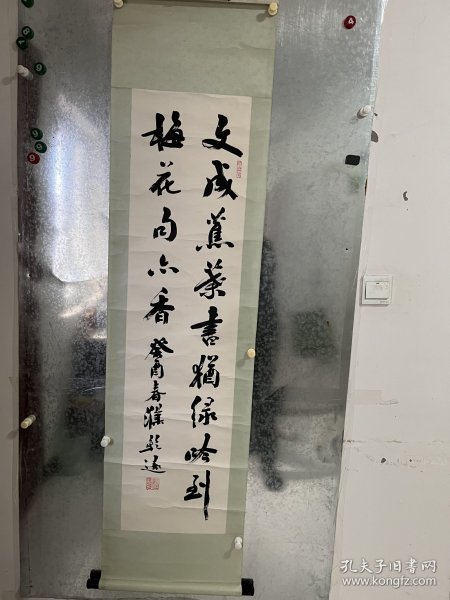 文成蕉葉書猶绿吟到
梅花句亦香
癸酉春
孔夫子旧书网
www.kongfz.com